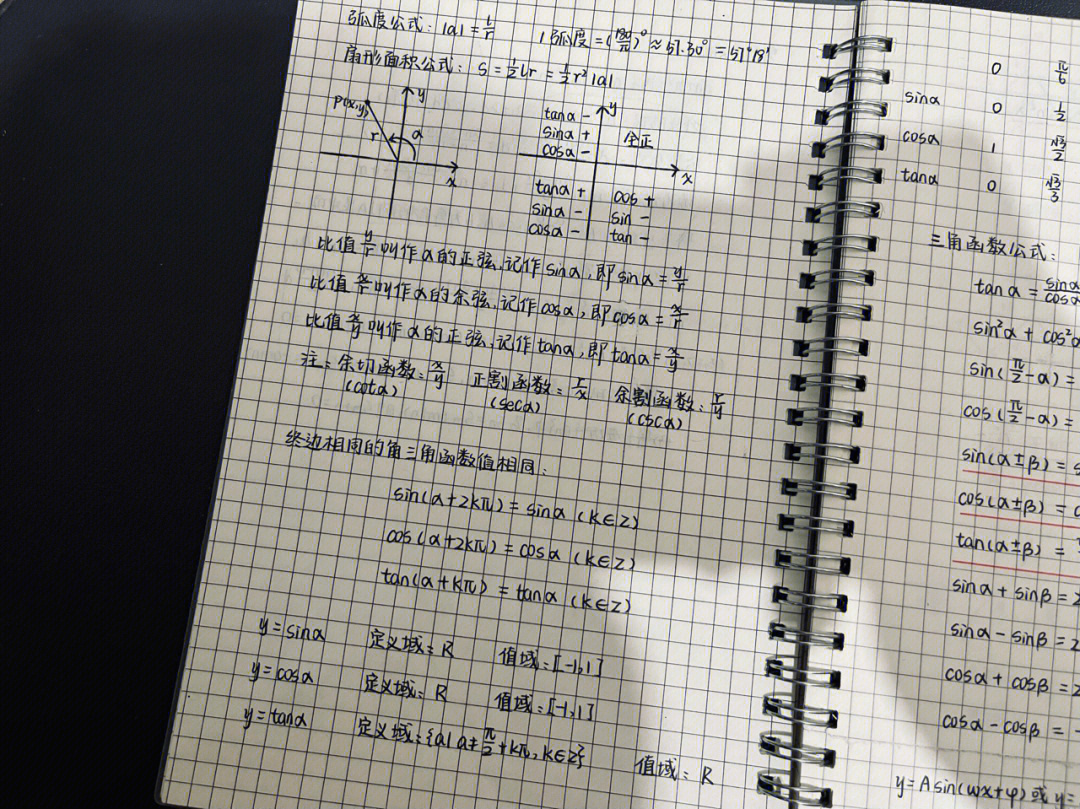 弧度公式：|α|=l/r 1弧度=(180/π)°≈57.30°=57°18′
扇形面积公式：S=½lr=½r²|α|
P(x,y)
r
α
y
x
y
x
tanα -
sinα +
cosα -
全正
tanα +
sinα -
cosα -
cos +
sin -
tan -
比值y/r叫作α的正弦,记作sinα,即sinα=y/r
比值x/r叫作α的余弦,记作cosα,即cosα=x/r
比值x/y叫作α的正弦,记作tanα,即tanα=x/y
注：余切函数：x/y 正割函数：r/x 余割函数：r/y
(cotα) (secα) (cscα)
终边相同的角三角函数值相同：
sin(α+2kπ)=sinα (k∈Z)
cos(α+2kπ)=cosα (k∈Z)
tan(α+kπ)=tanα (k∈Z)
y=sinα 定义域：R 值域：[-1,1]
y=cosα 定义域：R 值域：[-1,1]
y=tanα 定义域：{α|α≠π/2+kπ,k∈Z} 值域：R
0 π/6
sinα 0 1/2
cosα 1 √3/2
tanα 0 √3/3
三角函数公式：
tanα=sinα/cosα
sin²α+cos²α
sin(π/2-α)=
cos(π/2-α)=
sin(α±β)=s
cos(α±β)=c
tan(α±β)=
sinα+sinβ=2
sinα-sinβ=2
cosα+cosβ=2
cosα-cosβ=-
y=Asin(ωx+φ)或y=